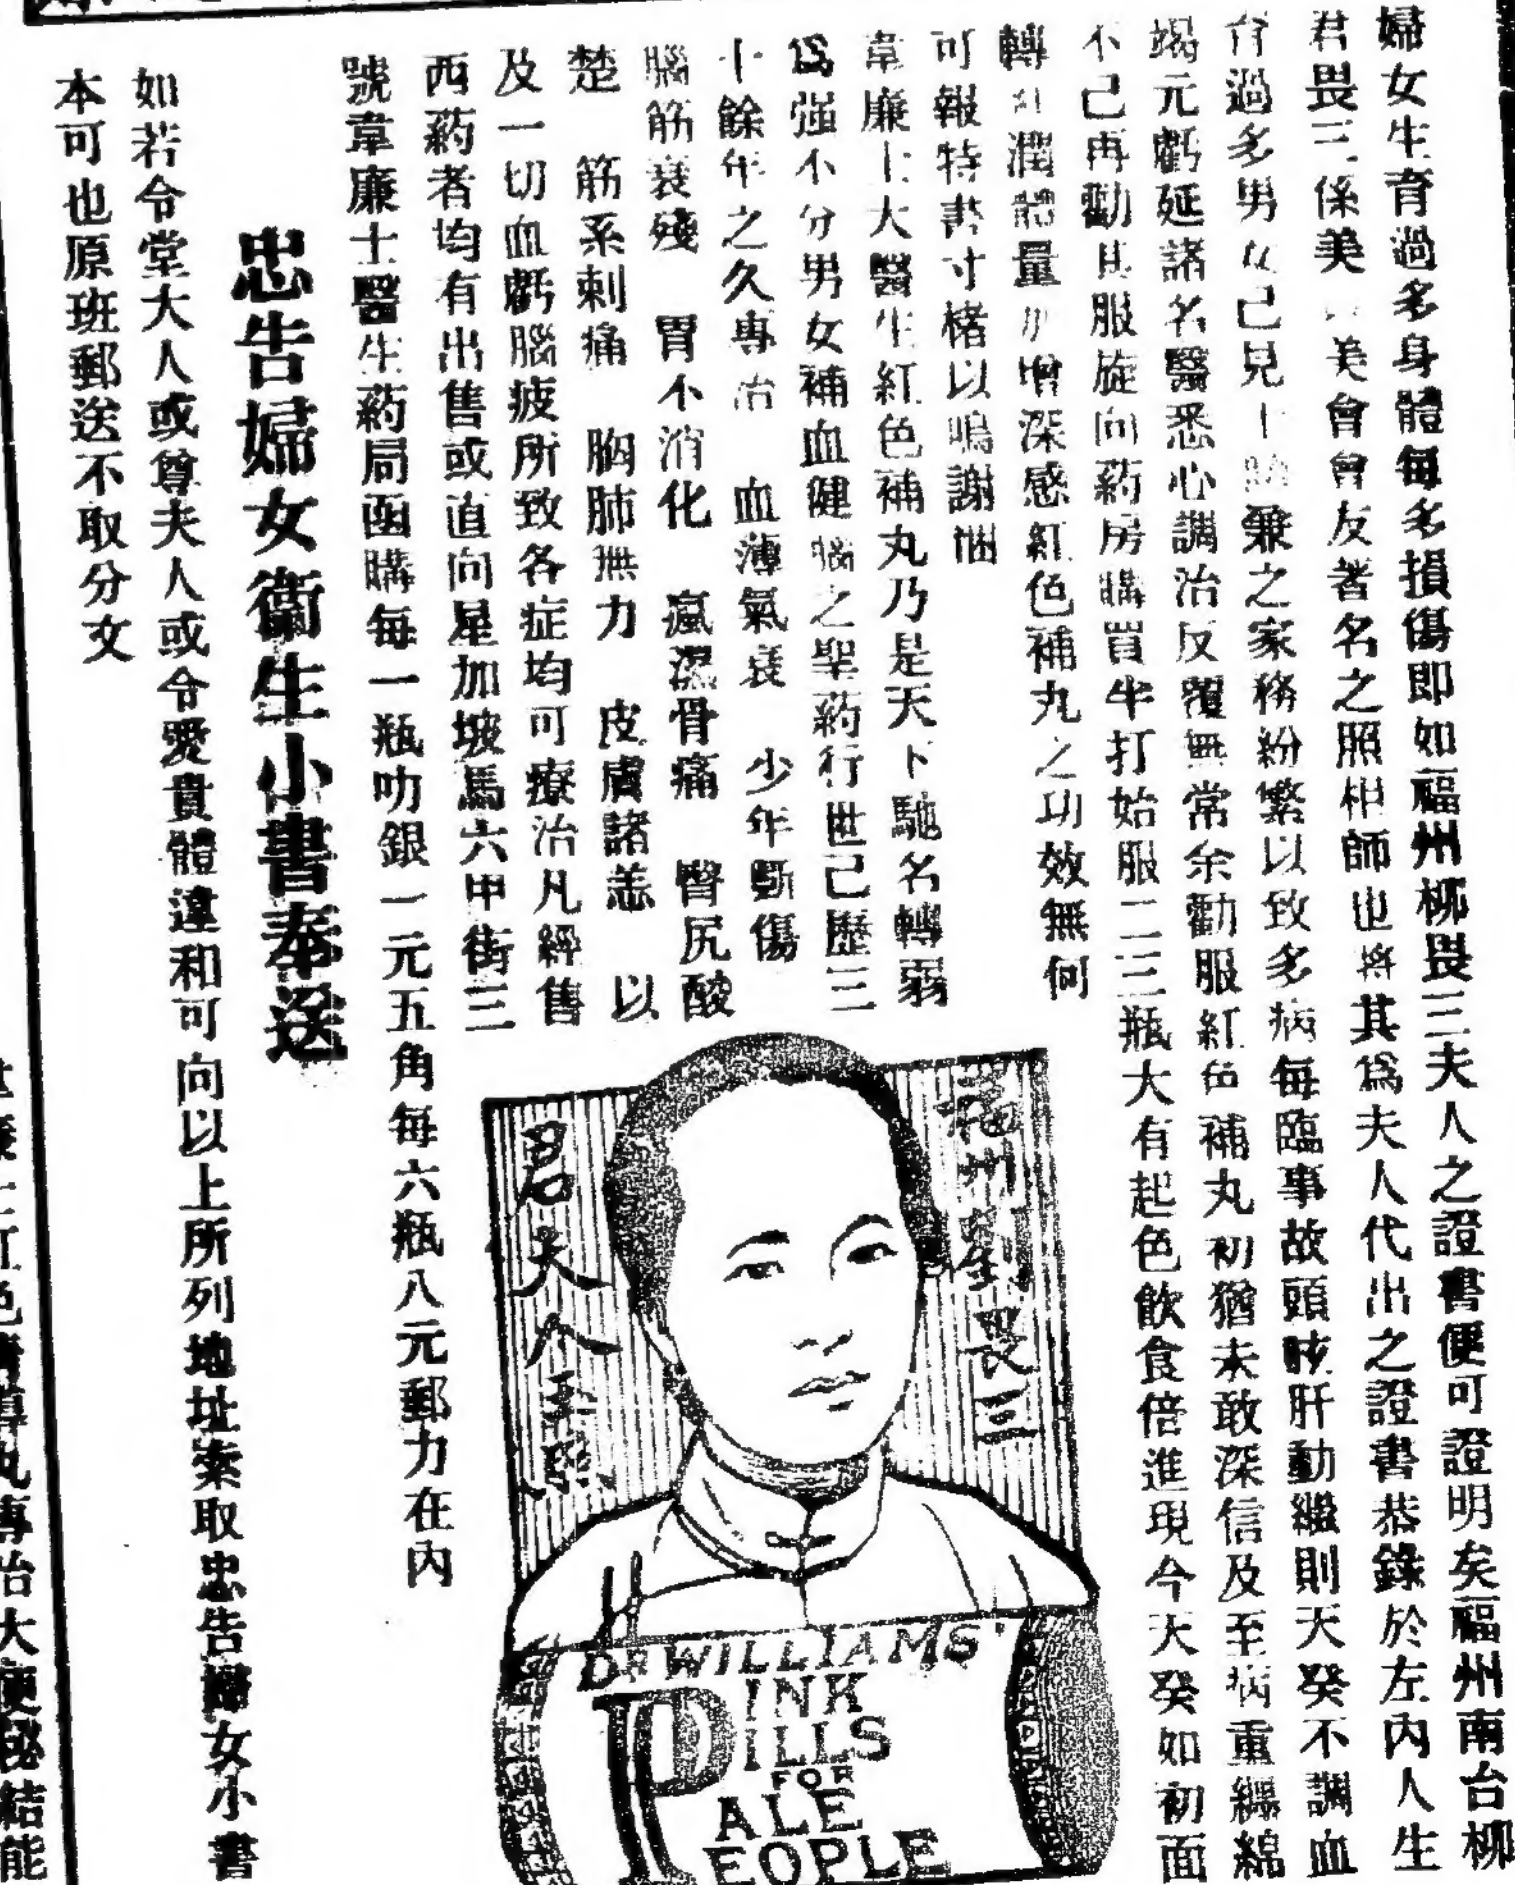 婦女生育過多身體每多損傷即如福州柳畏三夫人之證書便可證明矣福州南台柳
君畏三係美美會會友著名之照相師也將其爲夫人代出之證書恭錄於左內人生
育過多男女己見十兼之家務紛繁以致多病每臨事故頭眩肝動繼則天癸不調血
竭元虧延諸名醫悉心調治反覆無常余勸服紅色補丸初猶未敢深信及至病重纏綿
不己再勸其服旋向葯房購買半打始服二三瓶大有起色飲食倍進現今天癸如初面
轉紅潤體量加增深感紅色補丸之功效無何
可報特書寸楮以鳴謝悃
韋廉士大醫生紅色補丸乃是天下馳名轉弱
爲强不分男女補血健腦之聖葯行世己歷三
十餘年之久專治 血薄氣衰 少年斲傷
腦筋衰殘 胃不消化 瘋濕骨痛 臀尻酸
楚 筋系刺痛 胸肺無力 皮膚諸恙 以
及一切血虧腦疲所致各症均可療治凡經售
西葯者均有出售或直向星加坡馬六甲街三
號韋廉士醫生葯局函購每一瓶叻銀一元五角每六瓶八元郵力在內
忠告婦女衞生小書奉送
如若令堂大人或尊夫人或令愛貴體違和可向以上所列地址索取忠告婦女小書
本可也原班郵送不取分文
福州柳畏三
君夫人玉照
DR WILLIAMS'
PINK
PILLS
FOR
PALE
PEOPLE
韋廉士紅色清導丸專治大便秘結能